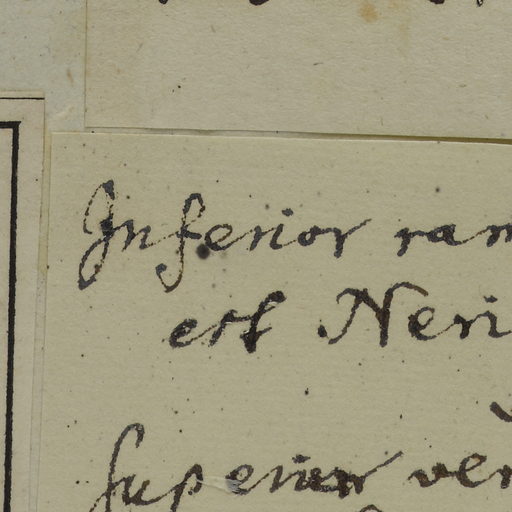 Inferior ram
est Neri
Superior ver